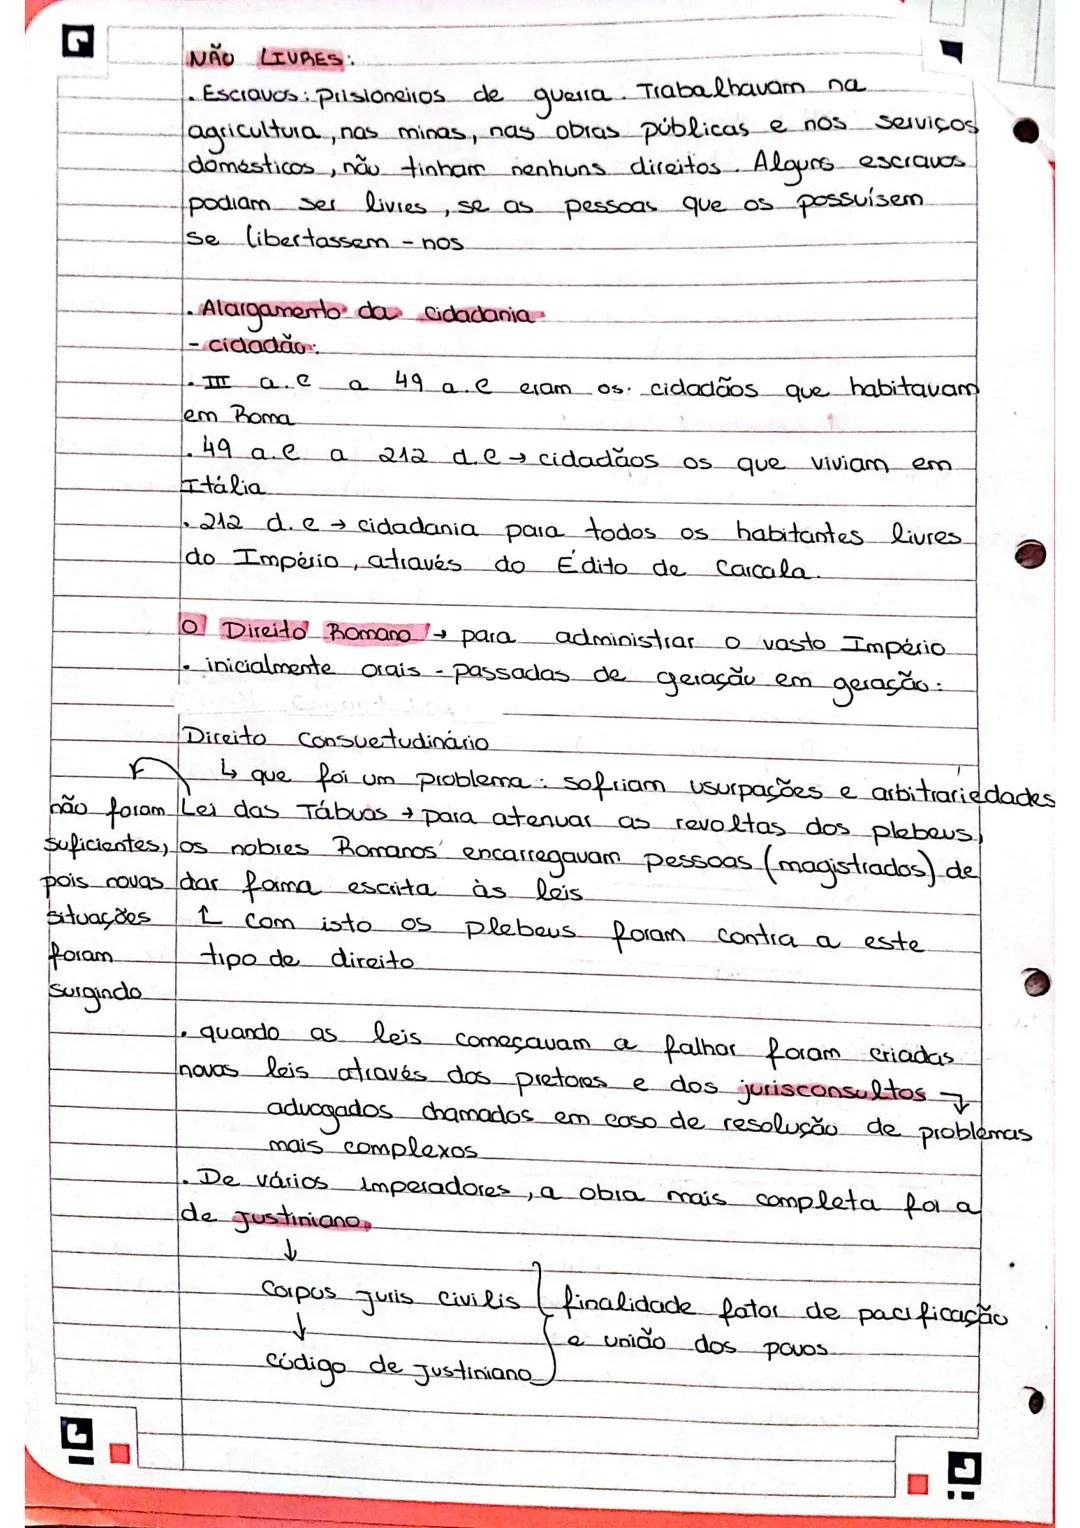 NÃO LIVRES:
. Escravos: prisioneiros de guerra. Trabalhavam na
agricultura, nas minas, nas obras públicas e nos serviços
domésticos, não tinham nenhuns direitos. Alguns escravos
podiam ser livres, se as pessoas que os possuísem
se libertassem - nos
. Alargamento da cidadania
- cidadão:
. III a.c a 49 a.c eram os. cidadãos que habitavam
em Roma
. 49 a.c a 212 d.c → cidadãos os que viviam em
Itália
. 212 d.c → cidadania para todos os habitantes livres
do Império, através do Édito de Carcala.
O Direito Romano → para administrar o vasto Império
. inicialmente orais - passadas de geração em geração:
Direito Consuetudinário
↳ que foi um problema: sofriam usurpações e arbitrariedades
Lei das Tábuas → para atenuar as revoltas dos plebeus,
os nobres Romanos encarregavam pessoas (magistrados) de
dar forma escrita às leis
↑ com isto os plebeus foram contra a este
tipo de direito
não foram
suficientes,
pois novas
situações
foram
surgindo
. quando as leis começavam a falhar foram criadas
novas leis através dos pretores e dos jurisconsultos →
advogados chamados em caso de resolução de problemas
mais complexos
. De vários imperadores, a obra mais completa foi a
de Justiniano
↓
Corpus Juris Civilis } finalidade fator de pacificação
↓ e união dos povos
código de Justiniano